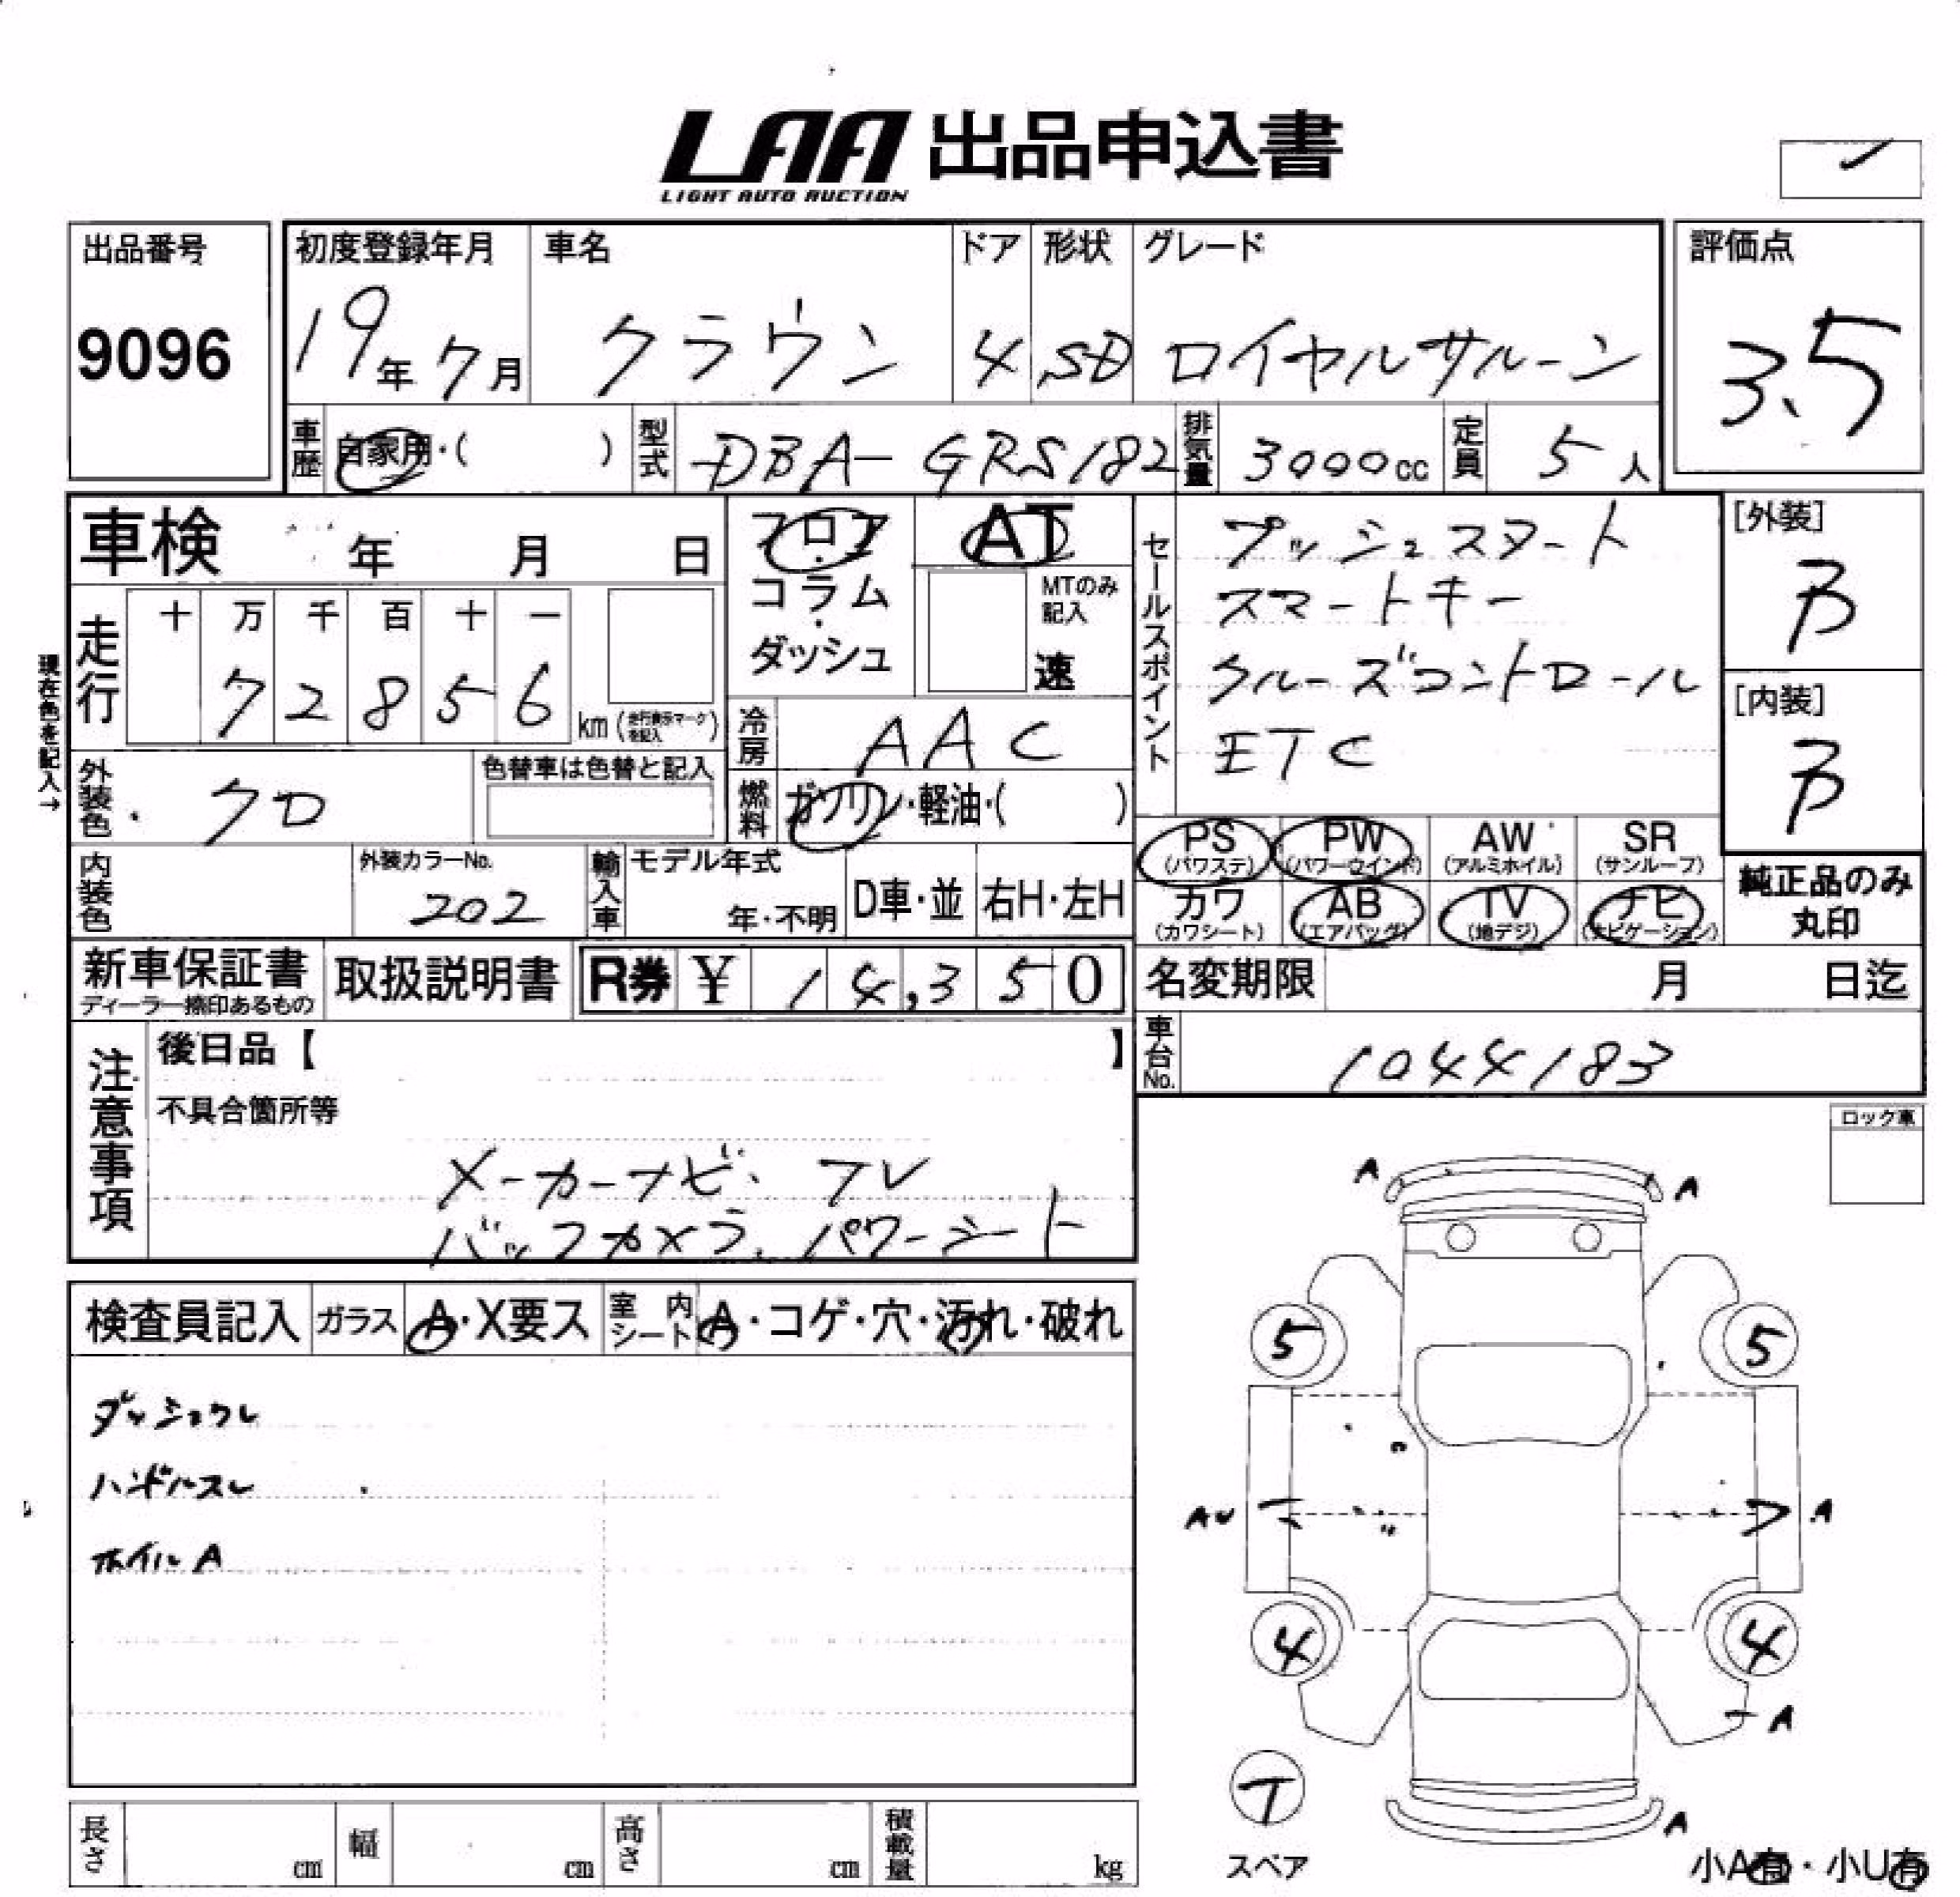 LAA 出品申込書
LIGHT AUTO AUCTION
出品番号
9096
初度登録年月
19年7月
車名
クラウン
ドア
4
形状
SD
グレード
ロイヤルサルーン
評価点
3.5
車歴
自家用・( )
型式
DBA-GRS182
排気量
3000cc
定員
5人
車検 年 月 日
フロア・コラム・ダッシュ
AT
MTのみ記入
速
現在色を記入→
走行
十 万 千 百 十 一
7 2 8 5 6 km (走行表示マークを記入)
冷房
AAC
外装色
クロ
色替車は色替と記入
燃料
ガソリン・軽油・( )
内装色
外装カラーNo.
202
輸入車
モデル年式
年・不明
D車・並
右H・左H
セールスポイント
プッシュスタート
スマートキー
クルーズコントロール
ETC
[外装]
B
[内装]
B
PS (パワステ)
PW (パワーウインド)
AW (アルミホイル)
SR (サンルーフ)
カワ (カワシート)
AB (エアバッグ)
TV (地デジ)
ナビ (ナビゲーション)
純正品のみ丸印
新車保証書
ディーラー捺印あるもの
取扱説明書
R券 ¥ 14,350
名変期限 月 日迄
車台No.
1044183
注意事項
後日品【 】
不具合箇所等
メーカーナビ. TV
バックカメラ. パワーシート
ロック車
検査員記入
ガラス A・X要ス
室内シート A・コゲ・穴・汚れ・破れ
ダッシュワレ
ハンドルスレ
ホイルA
A A
5 5
AU A
4 4
A
T
スペア
A
小A有・小U有
長さ cm
幅 cm
高さ cm
積載量 kg